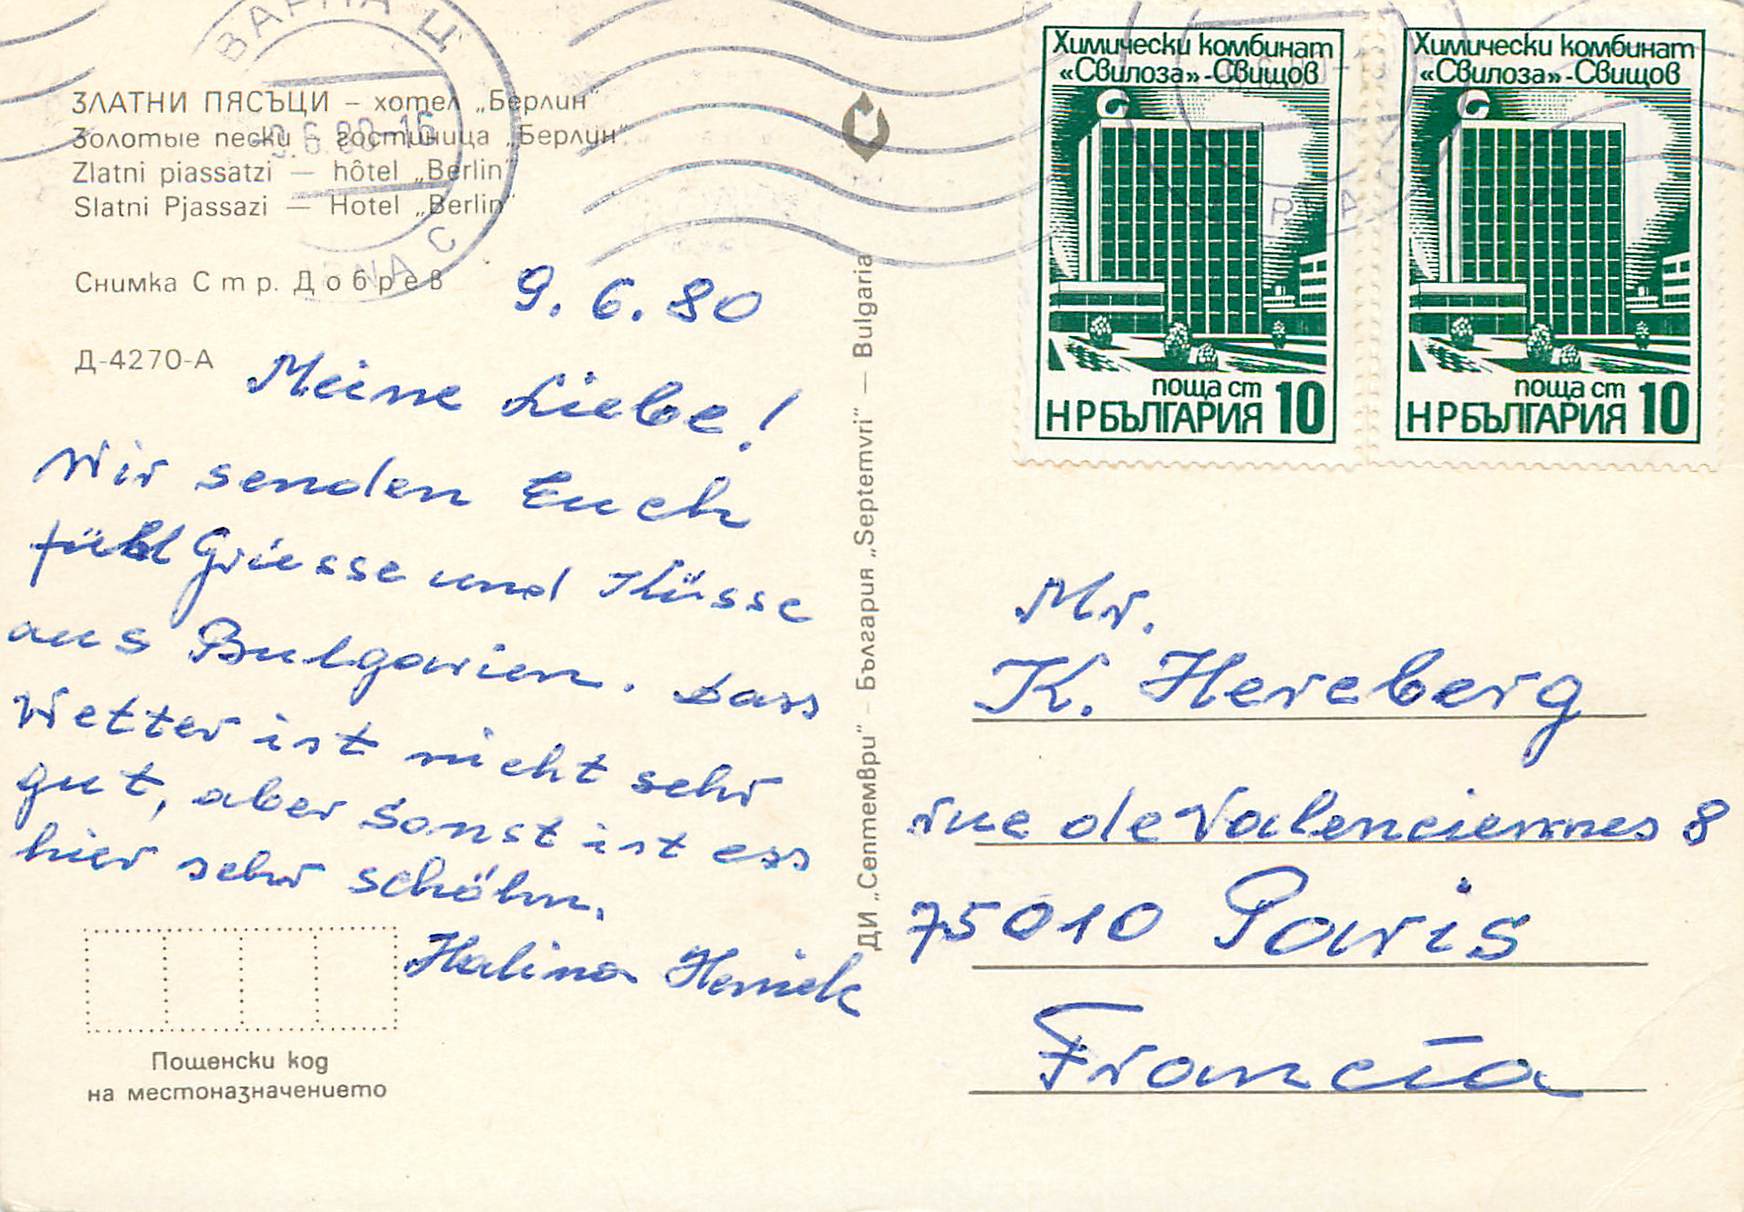 ВАРНА Ц
ЗЛАТНИ ПЯСЪЦИ – хотел „Берлин“
Золотые пески – гостиница „Берлин“
Zlatni piassatzi — hôtel „Berlin“
Slatni Pjassazi — Hotel „Berlin“
9.6.80-16
VARNA C
Снимка Стр. Добрев
Д-4270-А
9. 6. 80
Meine Liebe!
Wir senden Euch
Griesse und Küsse
aus Bulgarien. Dass
Wetter ist nicht sehr
gut, aber sonst ist ess
hier sehr schöhn.
Halina Heniek
Пощенски код
на местоназначението
ДИ „Септември“ – България „Septemvri“ — Bulgaria
Химически комбинат
«Свилоза»-Свищов
поща ст 10
НРБЪЛГАРИЯ
Химически комбинат
«Свилоза»-Свищов
поща ст 10
НРБЪЛГАРИЯ
Mr.
K. Hereberg
rue de Valenciennes 8
75010 Paris
Francia